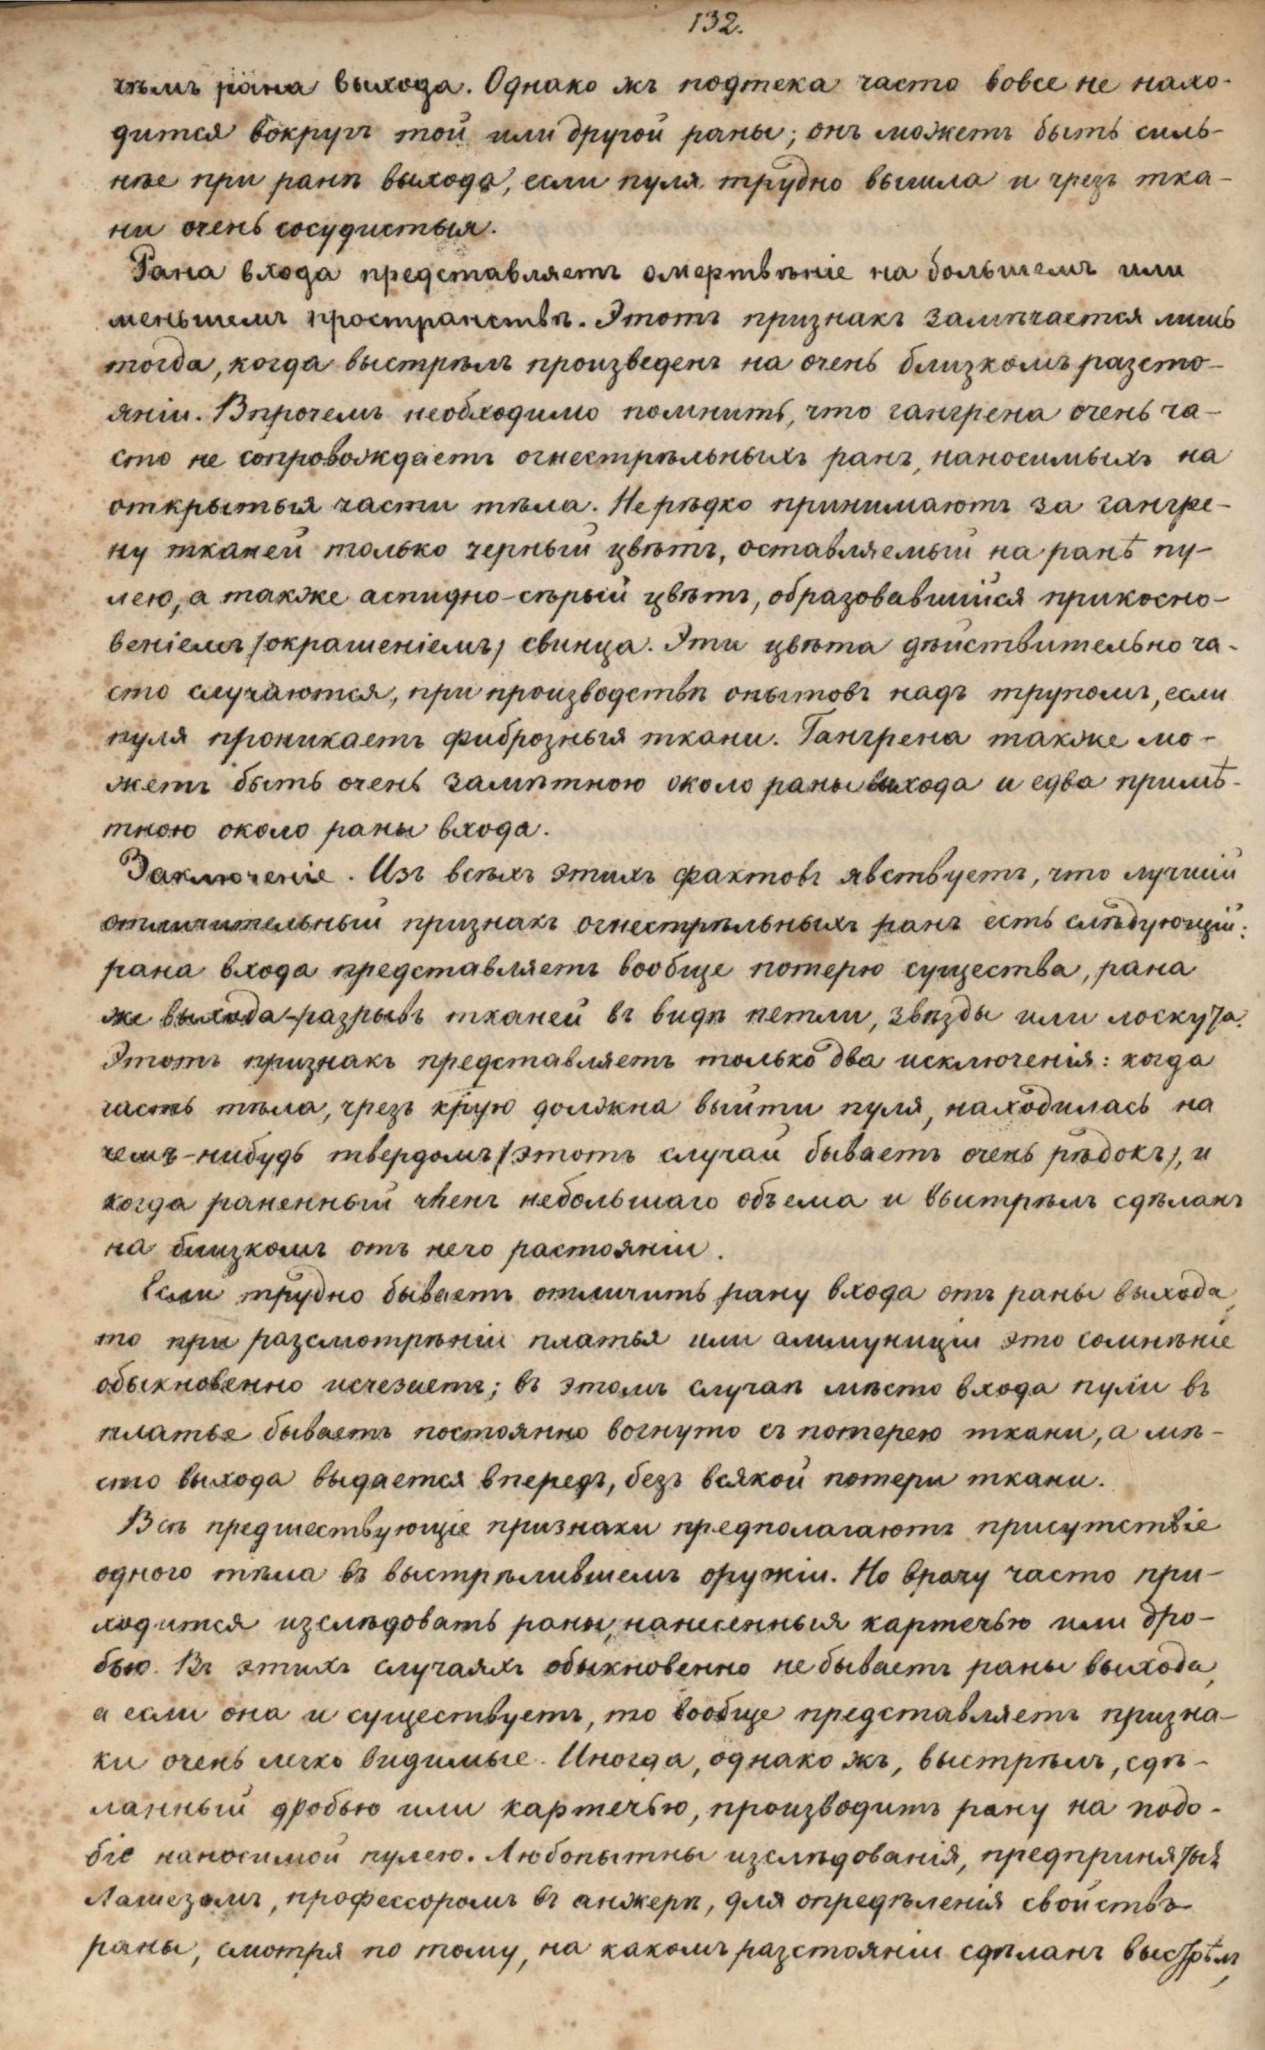 132.
чѣмъ рана выхода. Однако жъ подтека часто вовсе не нахо-
дится вокругъ той или другой раны; онъ можетъ быть силь-
нѣе при ранѣ выхода, если пуля трудно вышла и чрезъ тка-
ни очень сосудистыя.
Рана входа представляетъ омертвѣніе на большемъ или
меньшемъ пространствѣ. Этотъ признакъ замѣчается лишь
тогда, когда выстрѣлъ произведенъ на очень близкомъ разсто-
яніи. Впрочемъ необходимо помнить, что гангрена очень ча-
сто не сопровождаетъ огнестрѣльныхъ ранъ, наносимыхъ на
открытыя части тѣла. Нерѣдко принимаютъ за гангре-
ну тканей только черный цвѣтъ, оставляемый на ранѣ пу-
лею, а также аспидно-сѣрый цвѣтъ, образовавшийся прикосно-
веніемъ /окрашеніемъ/ свинца. Эти цвѣта дѣйствительно ча-
сто случаются, при производствѣ опытовъ надъ трупомъ, если
пуля проникаетъ фиброзныя ткани. Гангрена также мо-
жетъ быть очень замѣтною около раны выхода и едва примѣ-
тною около раны входа.
Заключеніе. Изъ всѣхъ этихъ фактовъ явствуетъ, что лучшій
отличительный признакъ огнестрѣльныхъ ранъ есть слѣдующій:
рана входа представляетъ вообще потерю существа, рана
же выхода - разрывъ тканей въ видѣ петли, звѣзды или лоскута.
Этотъ признакъ представляетъ только два исключенія: когда
часть тѣла, чрезъ крую должна выйти пуля, находилась на
чемъ-нибудь твердомъ /этотъ случай бываетъ очень рѣдокъ/, и
когда раненный членъ небольшаго объема и выстрѣлъ сдѣланъ
на близкомъ отъ него растояніи.
Если трудно бываетъ отличить рану входа отъ раны выхода,
то при разсмотрѣніи платья или аммуниціи это сомнѣніе
обыкновенно исчезаетъ; въ этомъ случаѣ мѣсто входа пули въ
платье бываетъ постоянно вогнуто съ потерею ткани, а мѣ-
сто выхода выдается впередъ, безъ всякой потери ткани.
Всѣ предшествующіе признаки предполагаютъ присутствіе
одного тѣла въ выстрѣлившемъ оружіи. Но врачу часто при-
ходится изслѣдовать раны, нанесенныя картечью или дро-
бью. Въ этихъ случаяхъ обыкновенно не бываетъ раны выхода,
а если она и существуетъ, то вообще представляетъ призна-
ки очень легко видимые. Иногда, однако жъ, выстрѣлъ, сдѣ-
ланный дробью или картечью, производитъ рану на подо-
біе наносимой пулею. Любопытны изслѣдованія, предпринятыя
Лашезомъ, профессоромъ въ анжерѣ, для опредѣленія свойствъ
раны, смотря по тому, на какомъ разстояніи сдѣланъ выстрѣлъ,